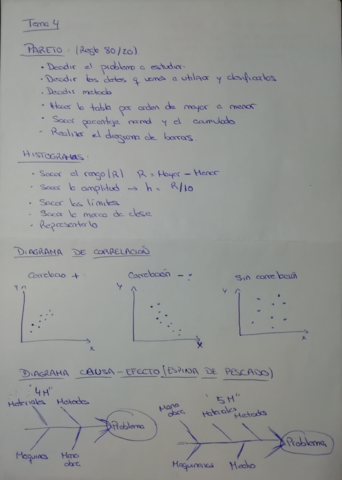 Tema 4
PARETO: (Regla 80/20)
• Decidir el problema a estudiar.
• Decidir los datos q vamos a utilizar y clasificarlos
• Decidir metodo
• Hacer la tabla por orden de mayor a menor
• Sacar porcentaje normal y el acumulado
• Realizar el diagrama de barras.
HISTOGRAMAS:
• Sacar el rango (R) R = Mayor - Menor
• Sacar la amplitud → h = R/10
• Sacar los límites
• Sacar la marca de clase
• Representarlo
DIAGRAMA DE CORRELACION
Correlacion + : Correlación - : Sin correlación
Y Y Y
X X X
DIAGRAMA CAUSA - EFECTO (ESPINA DE PESCADO)
"4M" "5M"
Materiales Metodos Mano obra Materiales Metodos
Problema Problema
Maquinas Mano obra Maquinaria Medio